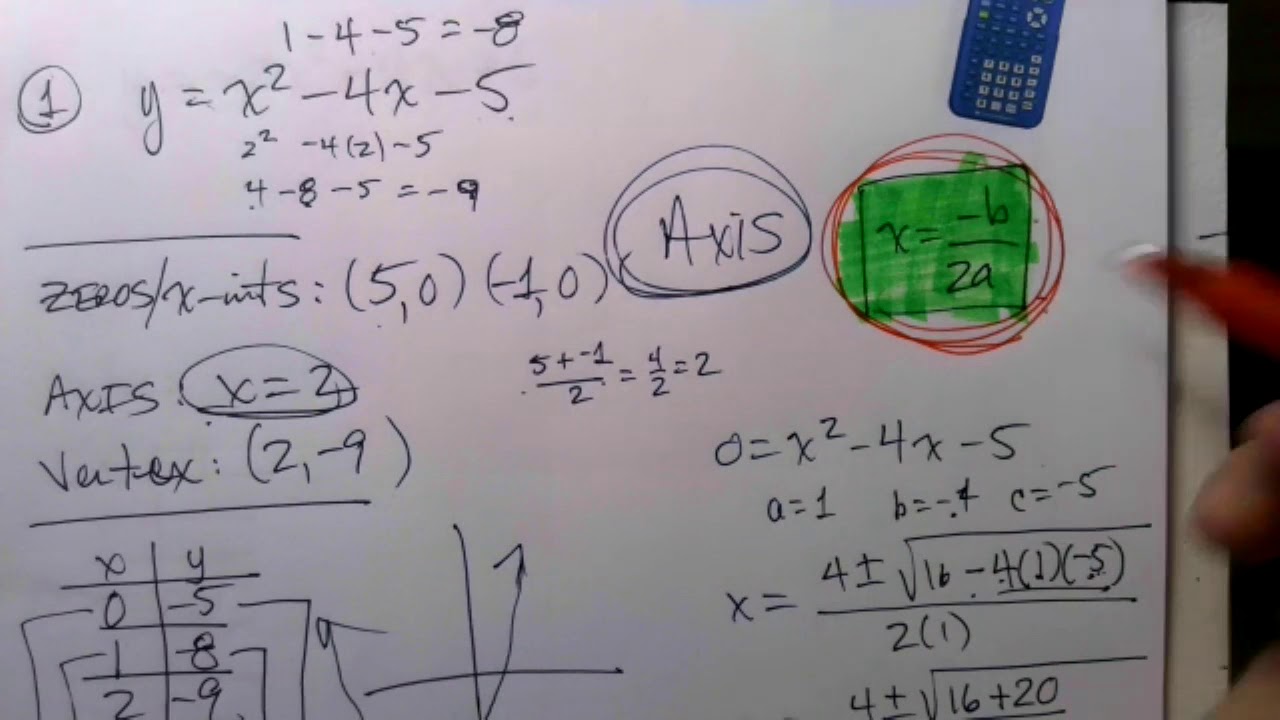 1 - 4 - 5 = -8
① y = x² - 4x - 5
2² -4(2) - 5
4 - 8 - 5 = -9
Axis
x = -b/2a
ZEROS/x-ints: (5,0) (-1,0)
5 + -1/2 = 4/2 = 2
AXIS: x = 2
Vertex: (2,-9)
x y
0 -5
1 -8
2 -9
0 = x² - 4x - 5
a = 1 b = -4 c = -5
x = 4 ± √16 - 4(1)(-5) / 2(1)
4 ± √16 + 20